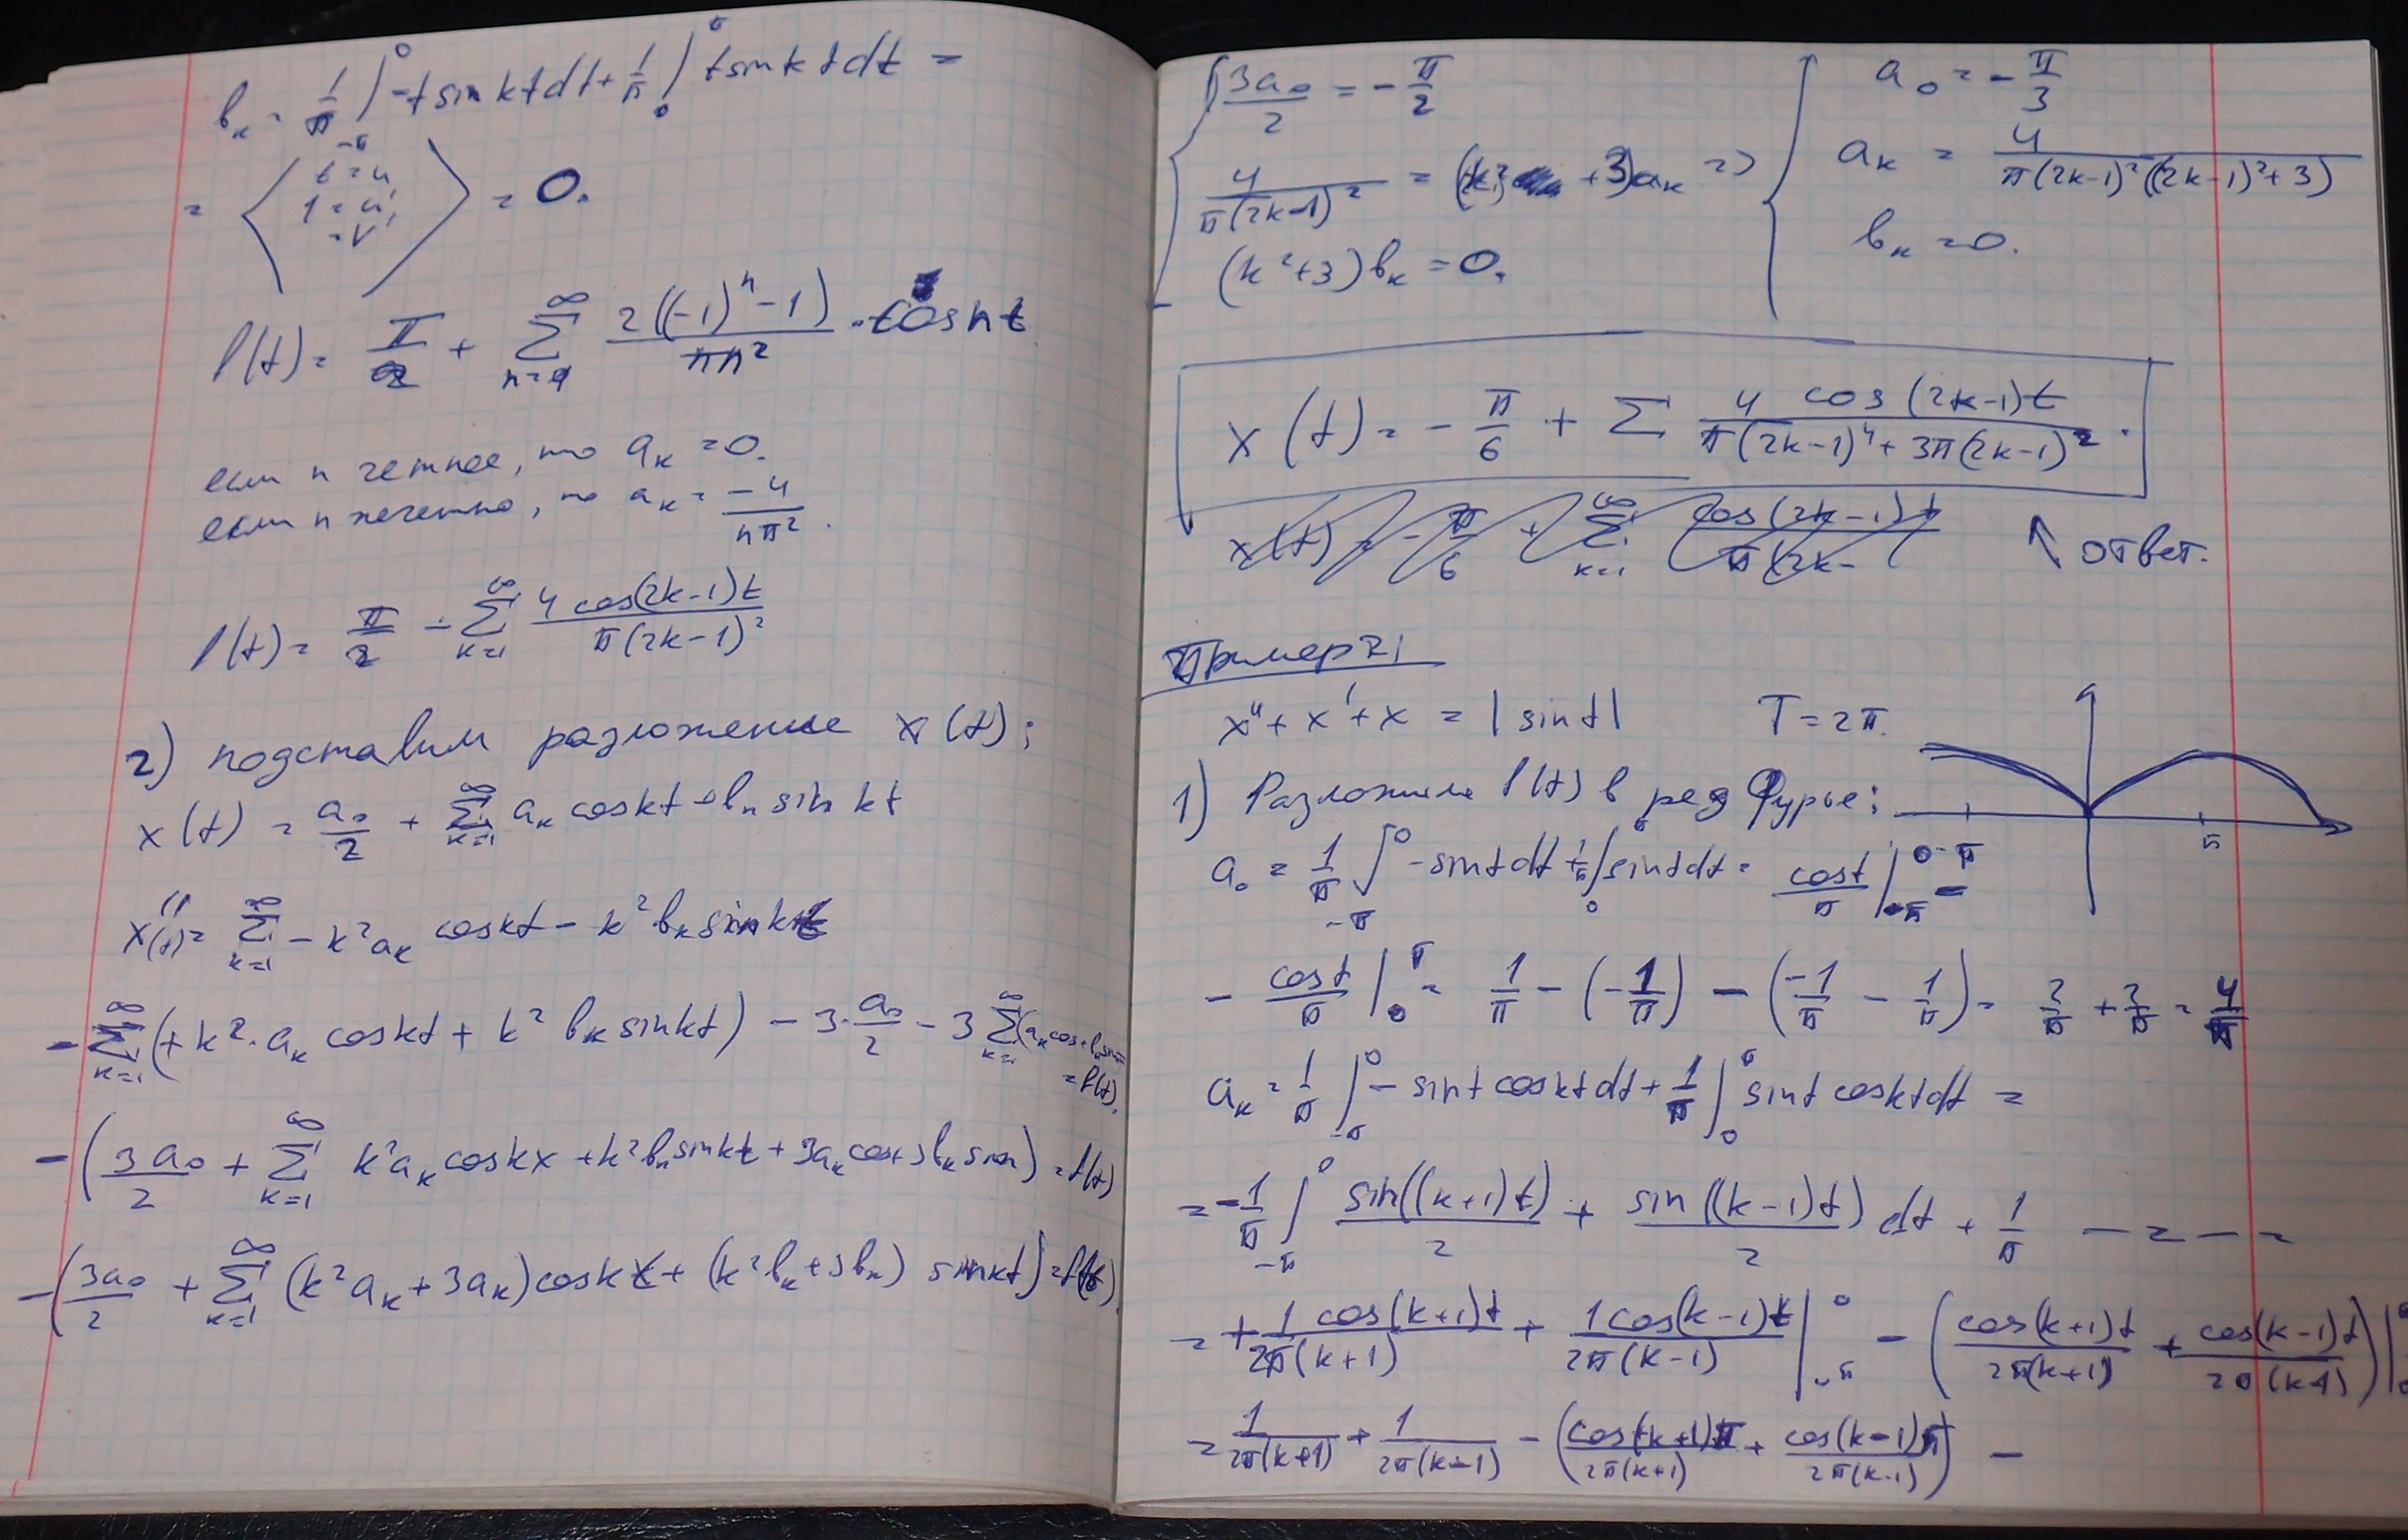 bₖ = 1/π ∫_{-π}^{0} -t sin kt dt + 1/π ∫_{0}^{π} t sin kt dt =
= ⟨ t = u, 1 = u', = v' ⟩ = 0.
f(t) = π/2 + ∑_{n=1}^{∞} 2((-1)ⁿ - 1)/(πn²) · cos nt
если n четное, то aₖ = 0.
если n нечетно, то aₖ = -4/(nπ²).
f(t) = π/2 - ∑_{k=1}^{∞} 4 cos(2k-1)t / π(2k-1)²
2) подставим разложение x(t):
x(t) = a₀/2 + ∑_{k=1}^{∞} aₖ cos kt + bₖ sin kt
x''(t) = ∑_{k=1}^{∞} - k²aₖ cos kt - k²bₖ sin kt
- ∑_{k=1}^{∞} (+ k²·aₖ cos kt + k² bₖ sin kt) - 3·a₀/2 - 3 ∑_{k=1}^{∞} (aₖ cos + bₖ sin = f(t).
- (3a₀/2 + ∑_{k=1}^{∞} k²aₖ cos kx + k²bₖ sin kt + 3aₖ cos + 3bₖ sin) = f(t)
- (3a₀/2 + ∑_{k=1}^{∞} (k²aₖ + 3aₖ) cos kt + (k²bₖ + 3bₖ) sin kt) = f(t).
{ 3a₀/2 = - π/2
4/π(2k-1)² = (k² + 3)aₖ =>
(k² + 3)bₖ = 0.
{ a₀ = - π/3
aₖ = 4/π(2k-1)²((2k-1)² + 3)
bₖ = 0.
x(t) = - π/6 + ∑ 4 cos(2k-1)t / π(2k-1)⁴ + 3π(2k-1)² .
x(t) = - π/6 + ∑_{k=1}^{∞} cos(2k-1)t / π(2k-
↖ ответ.
Пример 2:
x'' + x' + x = |sin t| T = 2π.
π
1) Разложим f(t) в ряд Фурье:
a₀ = 1/π ∫_{-π}^{0} - sin t dt + 1/π ∫_{0}^{π} sin t dt = cos t/π |_{-π}^{0} -
- cos t/π |_{0}^{π} = 1/π - (-1/π) - (-1/π - 1/π) = 2/π + 2/π = 4/π
aₖ = 1/π ∫_{-π}^{0} - sin t cos kt dt + 1/π ∫_{0}^{π} sin t cos kt dt =
= - 1/π ∫_{-π}^{0} sin((k+1)t)/2 + sin((k-1)t)/2 dt + 1/π — = — =
= + 1 cos(k+1)t / 2π(k+1) + 1 cos(k-1)t / 2π(k-1) |_{-π}^{0} - (cos(k+1)t / 2π(k+1) + cos(k-1)t / 2π(k-1)) |
= 1/2π(k+1) + 1/2π(k-1) - (cos(k+1)π / 2π(k+1) + cos(k-1)π / 2π(k-1)) -